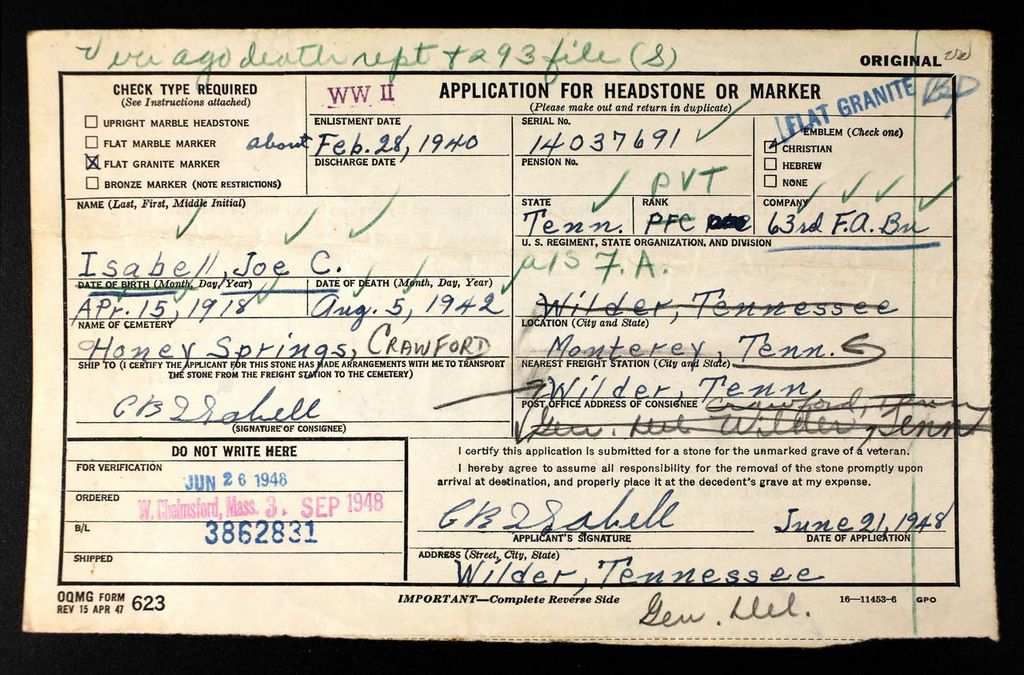 Veri ago death rept + a 93 file (S)
ORIGINAL
CHECK TYPE REQUIRED
(See Instructions attached)
UPRIGHT MARBLE HEADSTONE
FLAT MARBLE MARKER
FLAT GRANITE MARKER
BRONZE MARKER (NOTE RESTRICTIONS)
WW II
APPLICATION FOR HEADSTONE OR MARKER
(Please make out and return in duplicate)
FLAT GRANITE
ENLISTMENT DATE
about Feb. 28, 1940
DISCHARGE DATE
SERIAL No.
14037691
PENSION No.
EMBLEM (Check one)
CHRISTIAN
HEBREW
NONE
NAME (Last, First, Middle Initial)
Isabell, Joe C.
STATE
Tenn.
RANK
PVT
PFC
COMPANY
63rd F.A. Bn
U. S. REGIMENT, STATE ORGANIZATION, AND DIVISION
F.A.
DATE OF BIRTH (Month, Day, Year)
Apr. 15, 1918
DATE OF DEATH (Month, Day, Year)
Aug. 5, 1942
Wilder, Tennessee
NAME OF CEMETERY
Honey Springs, CRAWFORD
LOCATION (City and State)
Monterey, Tenn.
SHIP TO (I CERTIFY THE APPLICANT FOR THIS STONE HAS MADE ARRANGEMENTS WITH ME TO TRANSPORT
THE STONE FROM THE FREIGHT STATION TO THE CEMETERY)
C B Isabell
(SIGNATURE OF CONSIGNEE)
NEAREST FREIGHT STATION (City and State)
Wilder, Tenn.
POST OFFICE ADDRESS OF CONSIGNEE
Crawford, Tenn
Gen. Del. Wilder, Tenn
DO NOT WRITE HERE
FOR VERIFICATION
JUN 26 1948
ORDERED
W. Chelmsford, Mass. 3. SEP 1948
B/L
3862831
SHIPPED
I certify this application is submitted for a stone for the unmarked grave of a veteran.
I hereby agree to assume all responsibility for the removal of the stone promptly upon
arrival at destination, and properly place it at the decedent's grave at my expense.
C B Isabell
June 21, 1948
APPLICANT'S SIGNATURE
DATE OF APPLICATION
ADDRESS (Street, City, State)
Wilder, Tennessee
Gen. Del.
OQMG FORM
REV 15 APR 47
623
IMPORTANT—Complete Reverse Side
16—11453-6
GPO